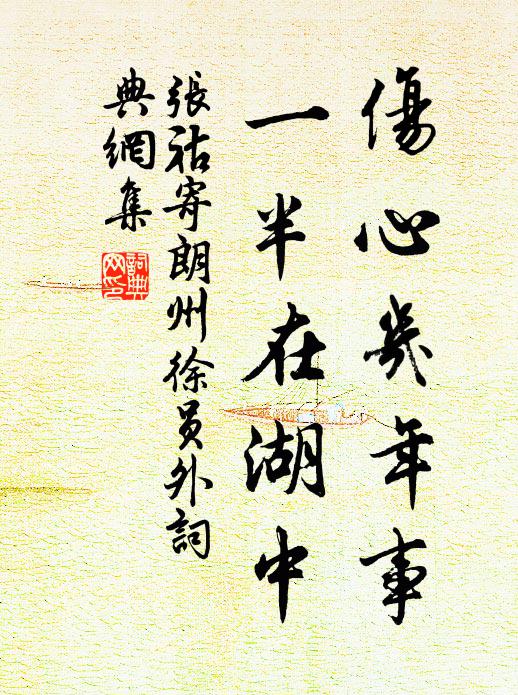 傷心幾年事
一半在湖中
張祜寄朗州徐員外詞
典網集
詞典
網印